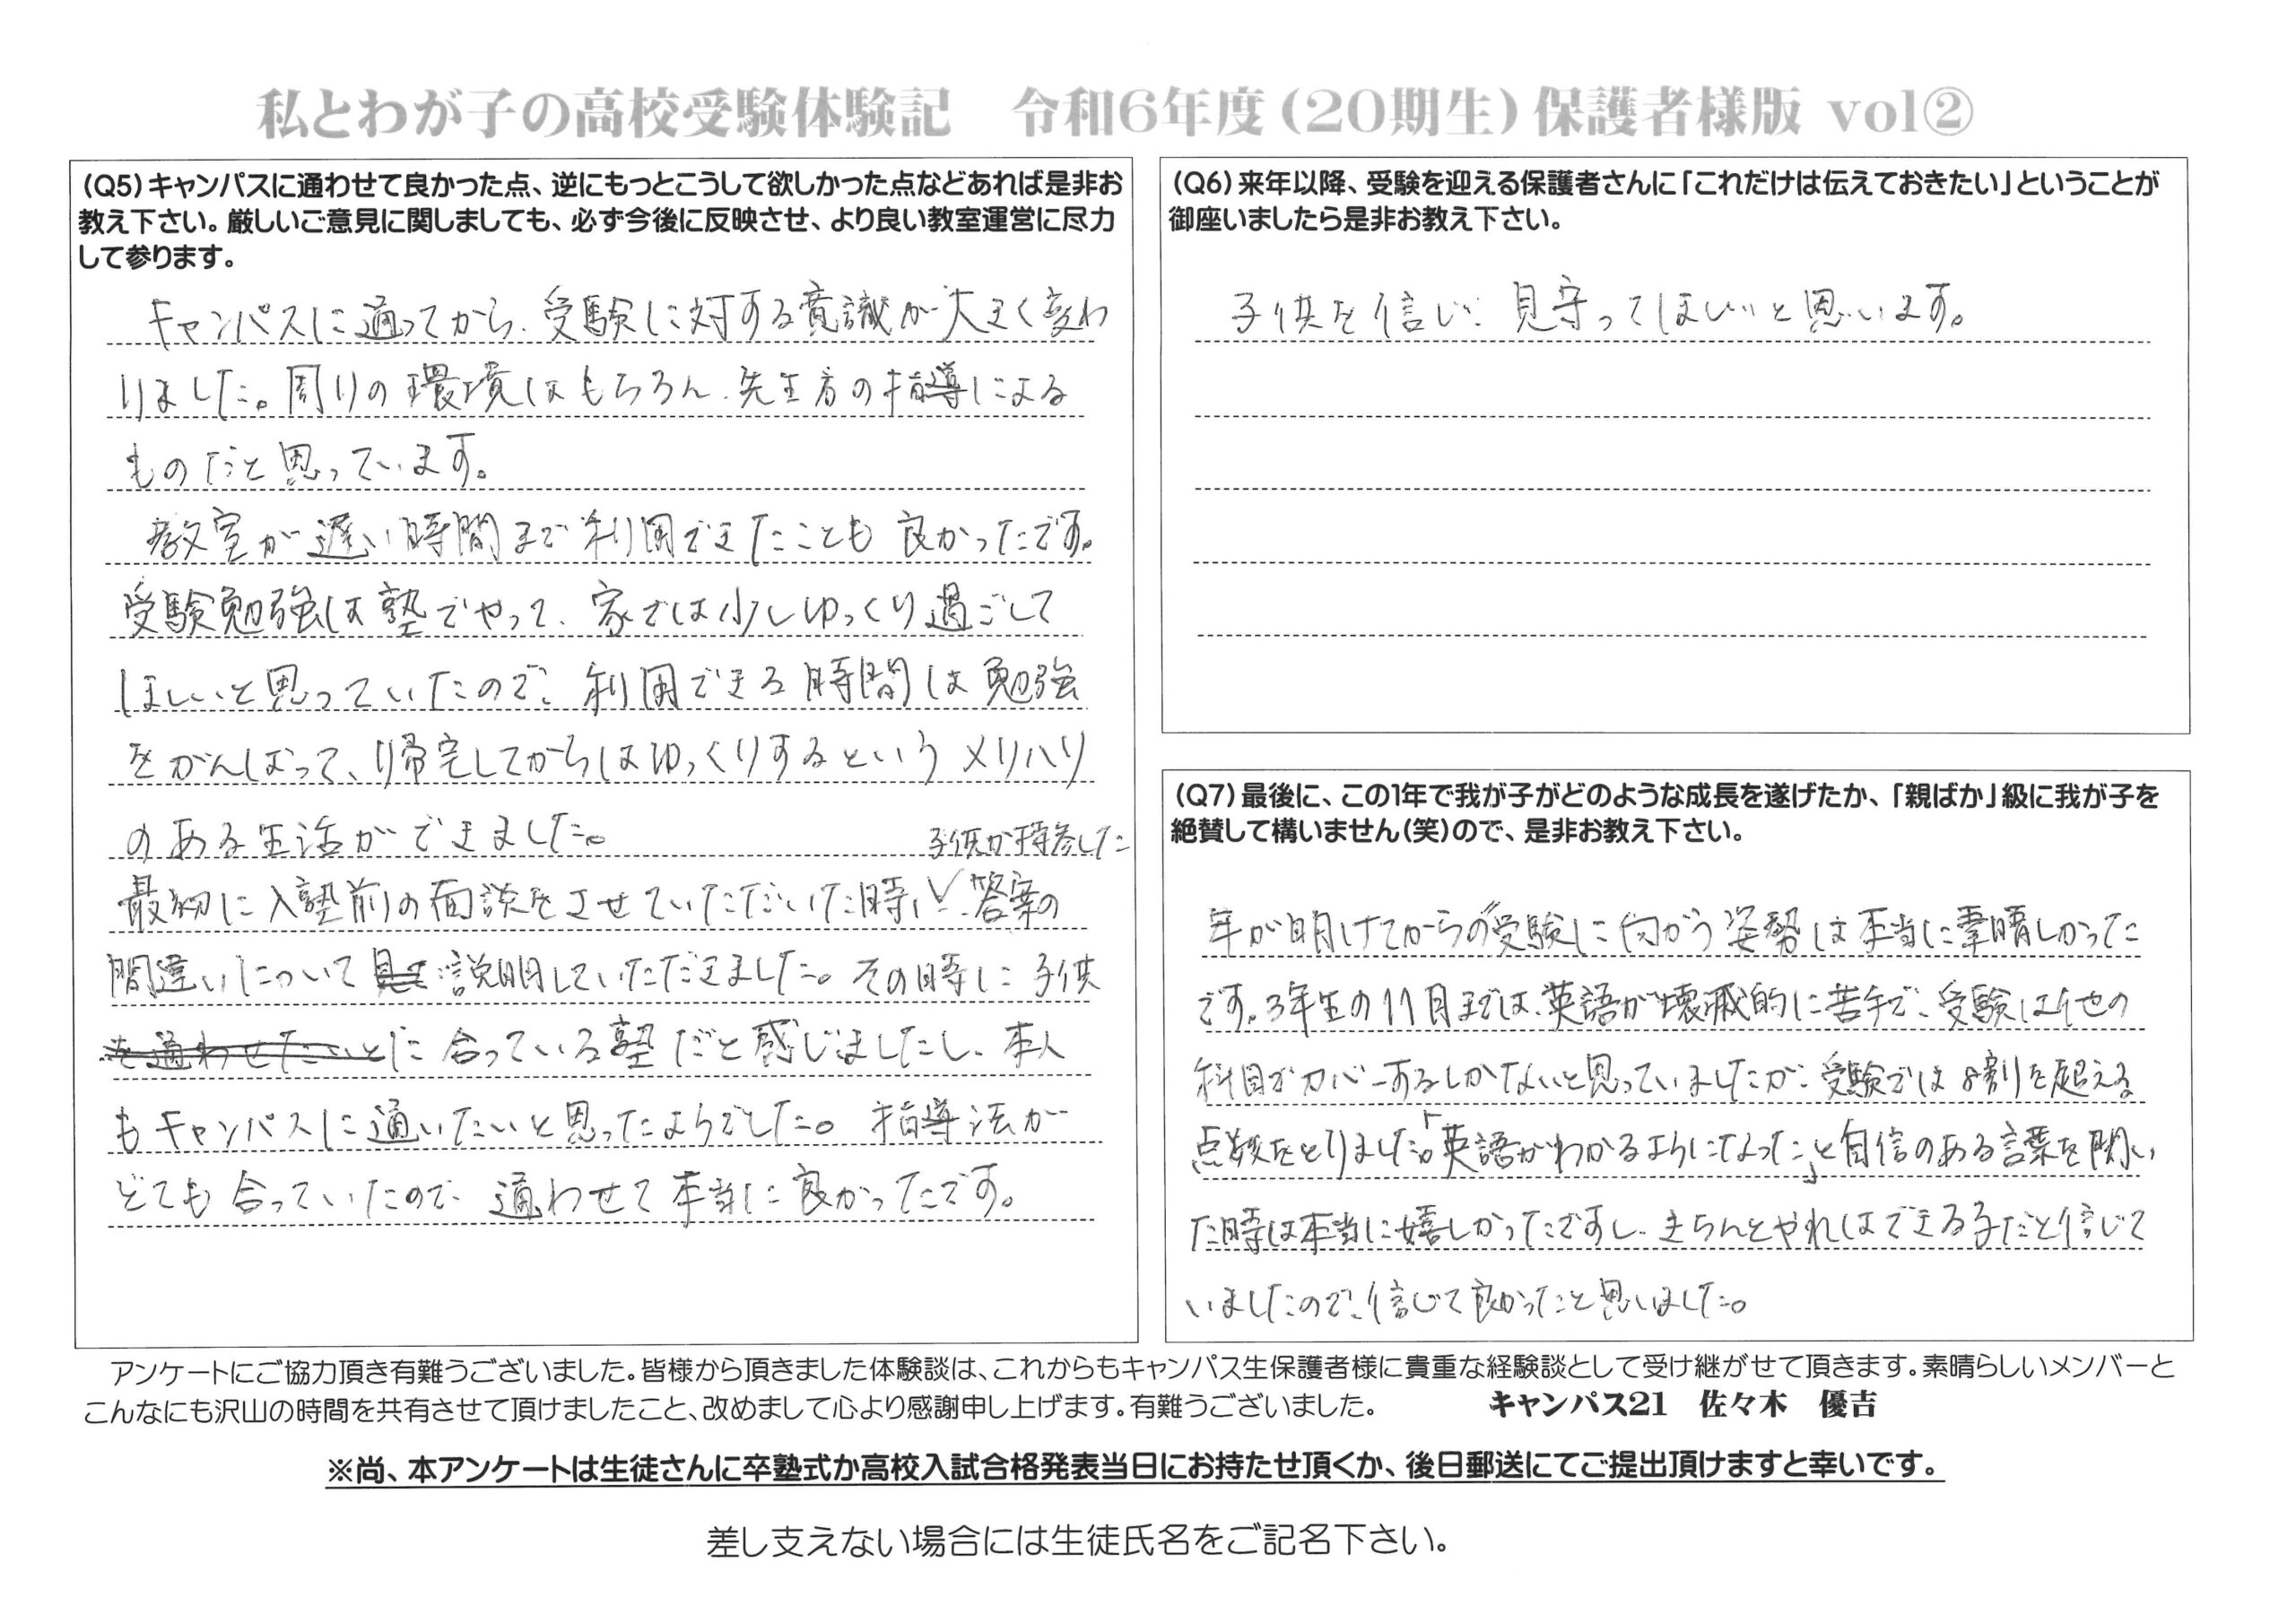 私とわが子の高校受験体験記　令和6年度（20期生）保護者様版 vol②
（Q5）キャンパスに通わせて良かった点、逆にもっとこうして欲しかった点などあれば是非お
教え下さい。厳しいご意見に関しましても、必ず今後に反映させ、より良い教室運営に尽力
して参ります。
キャンパスに通ってから、受験に対する意識が大きく変わ
りました。周りの環境はもちろん、先生方の指導による
ものだと思っています。
教室が遅い時間まで利用できたことも良かったです。
受験勉強は塾でやって、家では少しゆっくり過ごして
ほしいと思っていたので、利用できる時間は勉強
をがんばって、帰宅してからはゆっくりするというメリハリ
のある生活ができました。
子供が持参した
最初に入塾前の面談をさせていただいた時に、答案の
間違いについて見て説明していただきました。その時に子供
を通わせたいとに合っている塾だと感じましたし、本人
もキャンパスに通いたいと思ったようでした。指導法が
とても合っていたので、通わせて本当に良かったです。
（Q6）来年以降、受験を迎える保護者さんに「これだけは伝えておきたい」ということが
御座いましたら是非お教え下さい。
子供を信じ、見守ってほしいと思います。
（Q7）最後に、この1年で我が子がどのような成長を遂げたか、「親ばか」級に我が子を
絶賛して構いません（笑）ので、是非お教え下さい。
年が明けてからの受験に向かう姿勢は本当に素晴しかった
です。3年生の11月までは、英語が壊滅的に苦手で、受験は他の
科目がカバーするしかないと思っていましたが、受験では8割を超える
点数をとりました。「英語がわかるようになった」と自信のある言葉を聞い
た時は本当に嬉しかったですし、きちんとやればできる子だと信じて
いましたので、信じて良かったと思いました。
アンケートにご協力頂き有難うございました。皆様から頂きました体験談は、これからもキャンパス生保護者様に貴重な経験談として受け継がせて頂きます。素晴らしいメンバーと
こんなにも沢山の時間を共有させて頂けましたこと、改めまして心より感謝申し上げます。有難うございました。　キャンパス21　佐々木　優吉
※尚、本アンケートは生徒さんに卒塾式か高校入試合格発表当日にお持たせ頂くか、後日郵送にてご提出頂けますと幸いです。
差し支えない場合には生徒氏名をご記名下さい。